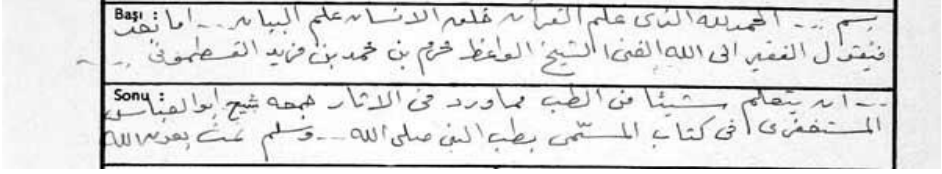 Başı: بسم ... الحمد لله الذى علم القرآن خلق الانسان علم البيان ... اما بعد
فيقول الفقير الى الله الغنى الشيخ الواعظ خرم بن محمد بن فريد القسطمونى ...
Sonu: ... ان يتعلم شيئا من الطب مما ورد فى الاثار جمعه شيخ ابو العباس
المستغفرى فى كتاب المسمّى بطب النبى صلى الله ... وسلم تمت بعون الله